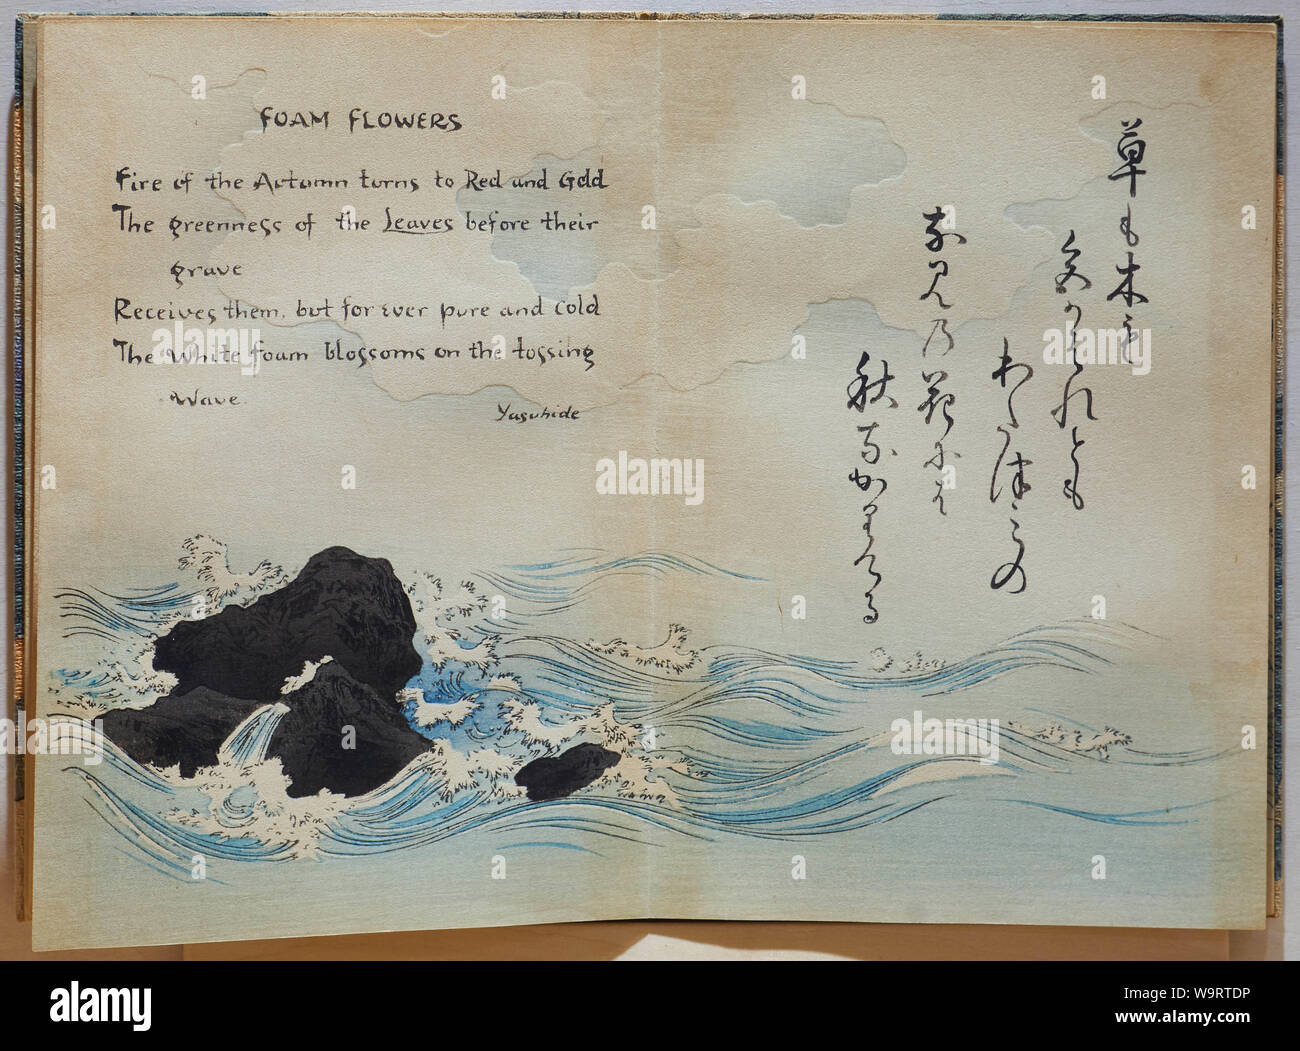 FOAM FLOWERS
Fire of the Autumn turns to Red and Gold
The greenness of the Leaves before their
grave
Receives them, but for ever pure and cold
The White foam blossoms on the tossing
Wave.
Yasuhide
草も木も
色かはれとも
わた津みの
な見乃花にそ
秋なかりける
alamy
alamy
Image ID: W9RTDP
www.alamy.com